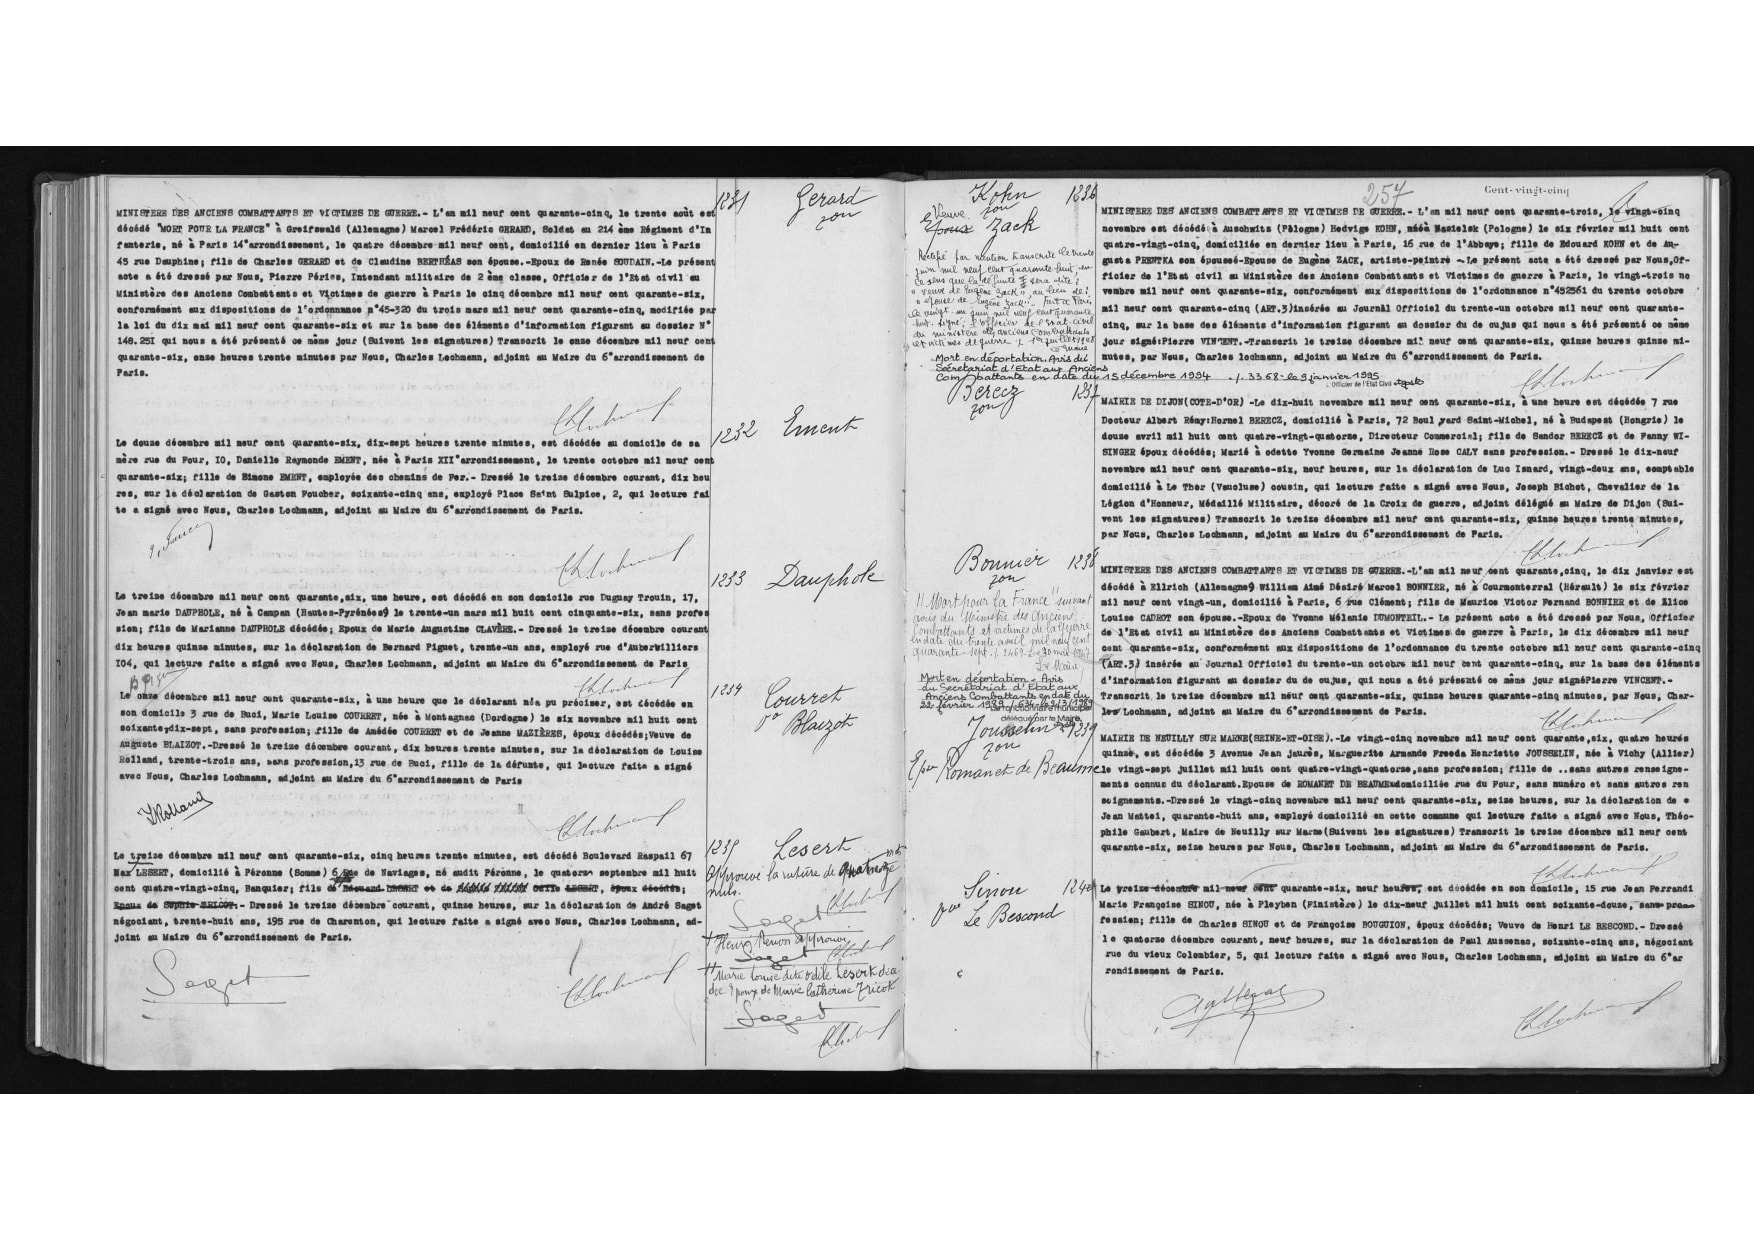 1231 Gerard
zon
MINISTERE DES ANCIENS COMBATTANTS ET VICTIMES DE GUERRE.- L'an mil neuf cent quarante-cinq, le trente août est
décédé "MORT POUR LA FRANCE" à Greifswald (Allemagne) Marcel Frédéric GERARD, Soldat au 214 ème Régiment d'In
fanterie, né à Paris 14°arrondissement, le quatre décembre mil neuf cent, domicilié en dernier lieu à Paris
45 rue Dauphine; fils de Charles GERARD et de Claudine BERTHÉAS son épouse.-Epoux de Renée SOUDAIN.-Le présent
acte a été dressé par Nous, Pierre Péries, Intendant militaire de 2ème classe, Officier de l'Etat civil au
Ministère des Anciens Combattants et Victimes de guerre à Paris le cinq décembre mil neuf cent quarante-six,
conformément aux dispositions de l'ordonnance n°45-320 du trois mars mil neuf cent quarante-cinq, modifiée par
la loi du dix mai mil neuf cent quarante-six et sur la base des éléments d'information figurant au dossier N°
148.251 qui nous a été présenté ce même jour (Suivent les signatures) Transcrit le onze décembre mil neuf cent
quarante-six, onze heures trente minutes par Nous, Charles Lochmann, adjoint au Maire du 6°arrondissement de
Paris.
1232 Ement
Le douze décembre mil neuf cent quarante-six, dix-sept heures trente minutes, est décédée au domicile de sa
mère rue du Four, 10, Danielle Raymonde EMENT, née à Paris XII°arrondissement, le trente octobre mil neuf cent
quarante-six; fille de Simone EMENT, employée des chemins de Fer.- Dressé le treize décembre courant, dix heu
res, sur la déclaration de Gaston Foucher, soixante-cinq ans, employé Place Saint Sulpice, 2, qui lecture fai
te a signé avec Nous, Charles Lochmann, adjoint au Maire du 6°arrondissement de Paris.
1233 Dauphole
Le treize décembre mil neuf cent quarante,six, une heure, est décédé en son domicile rue Duguay Trouin, 17,
Jean marie DAUPHOLE, né à Campan (Hautes-Pyrénées9 le trente-un mars mil huit cent cinquante-six, sans profes
sion; fils de Marianne DAUPHOLE décédée; Epoux de Marie Augustine CLAVÈRE.- Dressé le treize décembre courant
dix heures quinze minutes, sur la déclaration de Bernard Piguet, trente-un ans, employé rue d'Auberbilliers
104, qui lecture faite a signé avec Nous, Charles Lochmann, adjoint au Maire du 6°arrondissement de Paris
1234 Courret
Vve Blaizot
Le onze décembre mil neuf cent quarante-six, à une heure que le déclarant n'a pu préciser, est décédée en
son domicile 3 rue de Buci, Marie Louise COURRET, née à Montagnac (Dordogne) le six novembre mil huit cent
soixante;dix-sept, sans profession; fille de Amédée COURRET et de Jeanne MAZIÈRES, époux décédés;Veuve de
Auguste BLAIZOT.-Dressé le treize décembre courant, dix heures trente minutes, sur la déclaration de Louise
Rolland, trente-trois ans, sans profession,13 rue de Buci, fille de la défunte, qui lecture faite a signé
avec Nous, Charles Lochmann, adjoint au Maire du 6°arrondissement de Paris
Rolland
1235 Lesert
Approuvé la rature de quatorze mots
nuls.
Le treize décembre mil neuf cent quarante-six, cinq heures trente minutes, est décédé Boulevard Raspail 67
Max LESERT, domicilié à Péronne (Somme) 6 Rue de Naviages, né audit Péronne, le quatorze septembre mil huit
cent quatre-vingt-cinq, Banquier; fils de Edouard LESERT et de LESERT, époux décédés;
Epoux de Sophie TRICOT.- Dressé le treize décembre courant, quinze heures, sur la déclaration de André Saget
négociant, trente-huit ans, 195 rue de Charenton, qui lecture faite a signé avec Nous, Charles Lochmann, ad-
joint au Maire du 6°arrondissement de Paris.
Saget
Saget
approuvé
Saget
Marie Louise dite Odile Lesert déc
déc. Epoux de Marie Catherine Tricot
Saget
254
Cent-vingt-cinq
Kohn 1236
zon
Veuve
Epoux Zack
Rectifié par mention transcrite le trente
juin mil neuf cent quarante-huit, en
ce sens que la défunte sera dite:
"veuve de Eugène Zack" au lieu de:
"épouse de Eugène Zack". Fait à Paris
le vingt-un juin mil neuf cent quarante
huit. Signé: L'officier de l'Etat civil
du ministère des anciens combattants
et victimes de guerre. 1er juillet 1948
Mort en déportation. Avis du
Secrétariat d'Etat aux Anciens
Combattants en date du 15 décembre 1994 ./. 3368- le 9 janvier 1995
Officier de l'Etat Civil
MINISTERE DES ANCIENS COMBATTANTS ET VICTIMES DE GUERRE.- L'an mil neuf cent quarante-trois, le vingt-cinq
novembre est décédée à Auschwitz (Pologne) Hedvige KOHN, née à Nasielsk (Pologne) le six février mil huit cent
quatre-vingt-cinq, domiciliée en dernier lieu à Paris, 16 rue de l'Abbaye; fille de Edouard KOHN et de Au-
gusta PRENTKA son épouse-Epouse de Eugène ZACK, artiste-peintre -Le présent acte a été dressé par Nous,Of-
ficier de l'Etat civil au Ministère des Anciens Combattants et Victimes de guerre à Paris, le vingt-trois no
vembre mil neuf cent quarante-six, conformément aux dispositions de l'ordonnance n°452561 du trente octobre
mil neuf cent quarante-cinq (ART.3)insérée au Journal Officiel du trente-un octobre mil neuf cent quarante-
cinq, sur la base des éléments d'information figurant au dossier du de cujus qui nous a été présenté ce même
jour signé:Pierre VINCENT.-Transcrit le treize décembre mil neuf cent quarante-six, quinze heures quinze mi-
nutes, par Nous, Charles lochmann, adjoint au Maire du 6°arrondissement de Paris.
Berecz 1237
zon
MAIRIE DE DIJON(COTE-D'OR) -Le dix-huit novembre mil neuf cent quarante-six, à une heure est décédée 7 rue
Docteur Albert Rémy:Hornel BERECZ, domicilié à Paris, 72 Boulevard Saint-Michel, né à Budapest (Hongrie) le
douze avril mil huit cent quatre-vingt-quatorze, Directeur Commercial; fils de Sandor BERECZ et de Fanny WI-
SINGER époux décédés; Marié à odette Yvonne Germaine Jeanne Rose CALY sans profession.- Dressé le dix-neuf
novembre mil neuf cent quarante-six, neuf heures, sur la déclaration de Luc Isnard, vingt-deux ans, comptable
domicilié à Le Thor (Vaucluse) cousin, qui lecture faite a signé avec Nous, Joseph Bichot, Chevalier de la
Légion d'Honneur, Médaillé Militaire, décoré de la Croix de guerre, adjoint délégué au Maire de Dijon (Sui-
vent les signatures) Transcrit le treize décembre mil neuf cent quarante-six, quinze heures trente minutes,
par Nous, Charles Lochmann, adjoint au Maire du 6°arrondissement de Paris.
Bonnier 1238
zon
"Mort pour la France" suivant
avis du Ministre des Anciens
Combattants et victimes de la guerre
en date du trente avril mil neuf cent
quarante-sept ./. 2469 Le 30 mai 1947
Le Maire
Mort en déportation - Avis
du Secrétariat d'Etat aux
Anciens Combattants en date du
22 février 1989
Le fonctionnaire municipal
délégué par le Maire
MINISTERE DES ANCIENS COMBATTANTS ET VICTIMES DE GUERRE.-L'an mil neuf cent quarante,cinq, le dix janvier est
décédé à Ellrich (Allemagne9 William Aimé Désiré Marcel BONNIER, né à Courmonterral (Hérault) le six février
mil neuf cent vingt-un, domicilié à Paris, 6 rue Clément; fils de Maurice Victor Fernand BONNIER et de Alice
Louise CADROT son épouse.-Epoux de Yvonne Mélanie DUMONTEIL.- Le présent acte a été dressé par Nous, Officier
de l'Etat civil au Ministère des Anciens Combattants et Victimes de guerre à Paris, le dix décembre mil neuf
cent quarante-six, conformément aux dispositions de l'ordonnance du trente octobre mil neuf cent quarante-cinq
(ART.3) insérée au Journal Officiel du trente-un octobre mil neuf cent quarante-cinq, sur la base des éléments
d'information figurant au dossier du de cujus, qui nous a été présenté ce même jour signéPierre VINCENT.-
Transcrit le treize décembre mil neuf cent quarante-six, quinze heures quarante-cinq minutes, par Nous, Char-
les Lochmann, adjoint au Maire du 6°arrondissement de Paris.
Jousselin 1239
zon
Epse Romanet de Beaume
MAIRIE DE NEUILLY SUR MARNE(SEINE-ET-OISE).-Le vingt-cinq novembre mil neuf cent quarante,six, quatre heures
quinze, est décédée 3 Avenue Jean jaurès, Marguerite Armande Freeda Henriette JOUSSELIN, née à Vichy (Allier)
le vingt-sept juillet mil huit cent quatre-vingt-quatorze,sans profession; fille de ..sans autres renseigne-
ments connus du déclarant.Epouse de ROMANET DE BEAUMEdomiciliée rue du Four, sans numéro et sans autres ren
seignements.-Dressé le vingt-cinq novembre mil neuf cent quarante-six, seize heures, sur la déclaration de
Jean Mattei, quarante-huit ans, employé domicilié en cette commune qui lecture faite a signé avec Nous, Théo-
phile Gaubert, Maire de Neuilly sur Marne(Suivent les signatures) Transcrit le treize décembre mil neuf cent
quarante-six, seize heures par Nous, Charles Lochmann, adjoint au Maire du 6°arrondissement de Paris.
Sinou 1240
Vve Le Bescond
Le treize décembre mil neuf cent quarante-six, neuf heures, est décédée en son domicile, 15 rue Jean Ferrandi
Marie Françoise SINOU, née à Pleyben (Finistère) le dix-neuf juillet mil huit cent soixante-douze, sans pro-
fession; fille de Charles SINOU et de Françoise BOUGUION, époux décédés; Veuve de Henri LE BESCOND.- Dressé
le quatorze décembre courant, neuf heures, sur la déclaration de Paul Aussenac, soixante-cinq ans, négociant
rue du vieux Colombier, 5, qui lecture faite a signé avec Nous, Charles Lochmann, adjoint au Maire du 6°ar
rondissement de Paris.